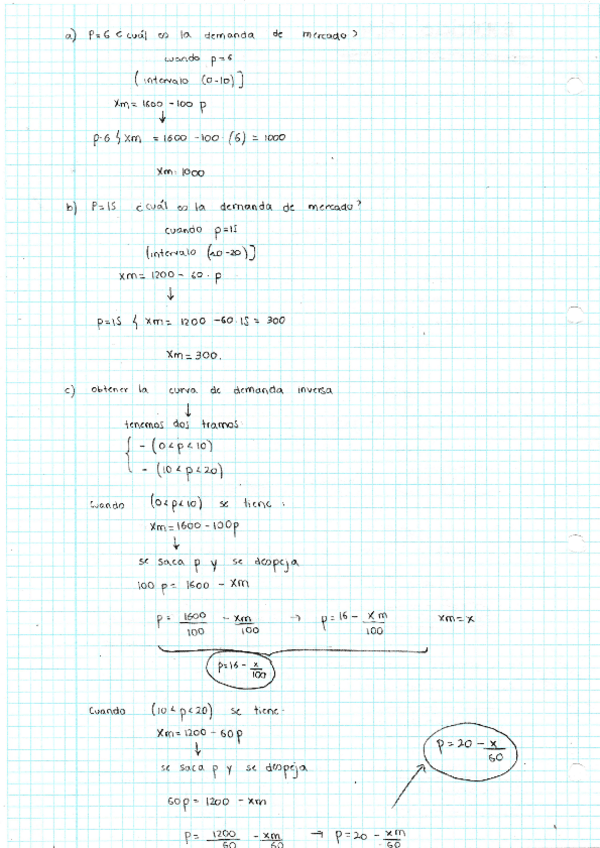 a) P=6 ¿cuál es la demanda de mercado?
cuando p=6
(intervalo (0-10)]
Xm = 1600 - 100 p
↓
p=6 } Xm = 1600 - 100 · (6) = 1000
Xm = 1000
b) P=15 ¿cuál es la demanda de mercado?
cuando p=15
(intervalo (20-20)]
Xm = 1200 - 60 · p
↓
p=15 } Xm = 1200 - 60 · 15 = 300
Xm = 300.
c) obtener la curva de demanda inversa
↓
tenemos dos tramos
{ - (0<p<10)
- (10<p<20)
Cuando (0<p<10) se tiene:
Xm = 1600 - 100p
↓
se saca p y se despeja
100 p = 1600 - Xm
p = 1600/100 - Xm/100 → p = 16 - Xm/100 Xm = X
p = 16 - x/100
Cuando (10<p<20) se tiene.
Xm = 1200 - 60p
↓
p = 20 - x/60
se saca p y se despeja
60p = 1200 - Xm
p = 1200/60 - Xm/60 → p = 20 - Xm/60